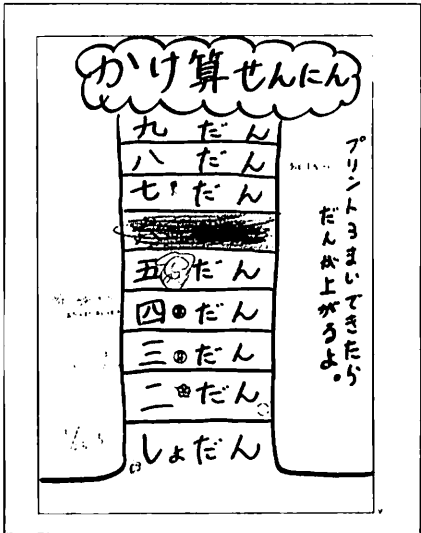 かけ算せんにん
九だん
八だん
七だん
五だん
四だん
三だん
二だん
しょだん
プリント3まいできたら
だんが上がるよ。